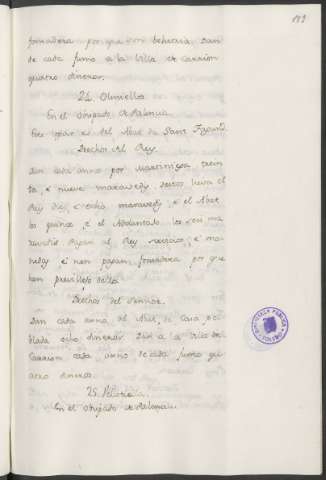 119
fonsadera por que son behetria. dan
de cada fumo a la Villa de Carrion
quatro dineros.
24. Olmiella
En el Obispado de Palencia.
Este logar es del Abad de Sant Fagund.
Derechos del Rey
Dan cada anno por Martiniega trein
ta, e nueve maravedis destos lieva el
Rey diez, e ocho maravedis, e el Abat
los quince, e el Adelantado los seis ma
ravedis pagan al Rey servicios, e mo
nedas e non pagan fonsadera por que
han previllejo dello
Derechos del Sennor.
Dan cada anno al Abat, de Casa po
blada ocho dineros. Dan a la Villa de
Carrion cada anno de cada fumo qu
atro dineros.
25.
En el Obispado de Palencia.
BIBLIOTECA PUBLICA
TOLEDO